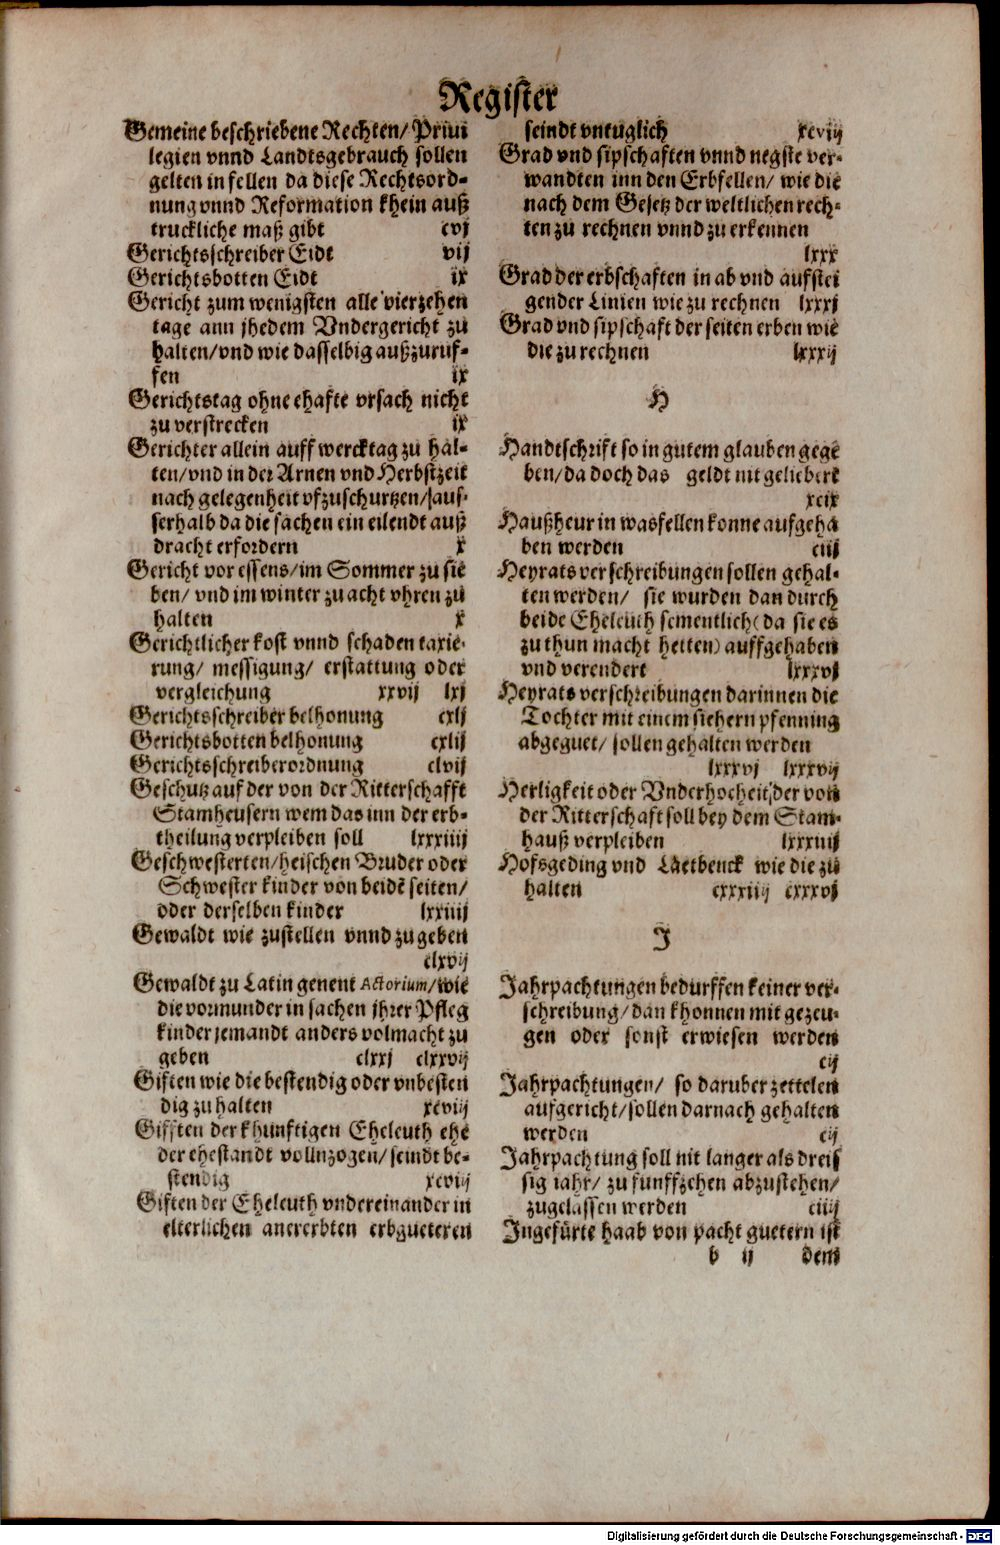 Register
Gemeine beschriebene Rechten/ Priui
legien vnnd Landtsgebrauch sollen
gelten in fellen da diese Rechtsord-
nung vnnd Reformation khein auß
truckliche maß gibt cvj
Gerichtsschreiber Eidt vij
Gerichtsbotten Eidt ix
Gericht zum wenigsten alle vierzehen
tage ann jhedem Vndergericht zu
halten/vnd wie dasselbig außzuruf-
fen ix
Gerichtstag ohne ehafte vrsach nicht
zu verstrecken ix
Gerichter allein auff wercktag zu hal-
ten/vnd in der Arnen vnd Herbstzeit
nach gelegenheit vfzuschurtzen/aus-
serhalb da die sachen ein eilendt auß
dracht erfordern x
Gericht vor essens/im Sommer zu sie
ben/ vnd im winter zu acht vhren zu
halten x
Gerichtlicher kost vnnd schaden taxie-
rung/ messigung/ erstattung oder
vergleichung xxvij lxj
Gerichtsschreiber belhonung cxlj
Gerichtsbotten belhonung cxlij
Gerichtsschreiberordnung clvij
Geschutz auf der von der Ritterschafft
Stamheusern wem das inn der erb-
theilung verpleiben soll lxxxiiij
Geschwesterten/heischen Bruder oder
Schwester kinder von beidē seiten/
oder derselben kinder lxxiiij
Gewaldt wie zustellen vnnd zugeben
clxvij
Gewaldt zu Latin genent Actorium/wie
die vormunder in sachen jhrer Pfleg
kinder jemandt anders volmacht zu
geben clxxj clxxvij
Giften wie die bestendig oder vnbesten
dig zu halten xcviij
Gifften der khunftigen Eheleuth ehe
der ehestandt vollnzogen/seindt be-
stendig xcviij
Giften der Eheleuth vndereinander in
elterlichen anererbten erbgueteren
seindt vntuglich xcviij
Grad vnd sipschaften vnnd negste ver-
wandten inn den Erbfellen/ wie die
nach dem Gesetz der weltlichen rech-
ten zu rechnen vnnd zu erkennen
lxxx
Grad der erbschaften in ab vnd aufstei
gender Linien wie zu rechnen lxxxj
Grad vnd sipschaft der seiten erben wie
die zu rechnen lxxxij
H
Handtschrift so in gutem glauben gege
ben/da doch das geldt nit geliebert
xcix
Haußheur in was fellen konne aufgeha
ben werden ciij
Heyratsverschreibungen sollen gehal-
ten werden/ sie wurden dan durch
beide Eheleuth sementlich(da sie es
zu thun macht hetten)auffgehaben
vnd verendert lxxxvj
Heyratsverschreibungen darinnen die
Tochter mit einem siehern pfenning
abgeguet/ sollen gehalten werden
lxxxvj lxxxvij
Herligkeit oder Vnderhocheit/der von
der Ritterschaft soll bey dem Stam-
hauß verpleiben lxxxiiij
Hofsgeding vnd Laetbenck wie die zu
halten cxxxiiij cxxxvj
J
Jahrpachtungen bedurffen keiner ver-
schreibung/dan khonnen mit gezeu-
gen oder sonst erwiesen werden
cij
Jahrpachtungen/ so daruber zettelen
aufgericht/sollen darnach gehalten
werden cij
Jahrpachtung soll nit langer als dreis
sig iahr/ zu funffzehen abzustehen/
zugelassen werden ciiij
Ingefürte haab von pacht guetern ist
b ij dem
Digitalisierung gefördert durch die Deutsche Forschungsgemeinschaft - DFG